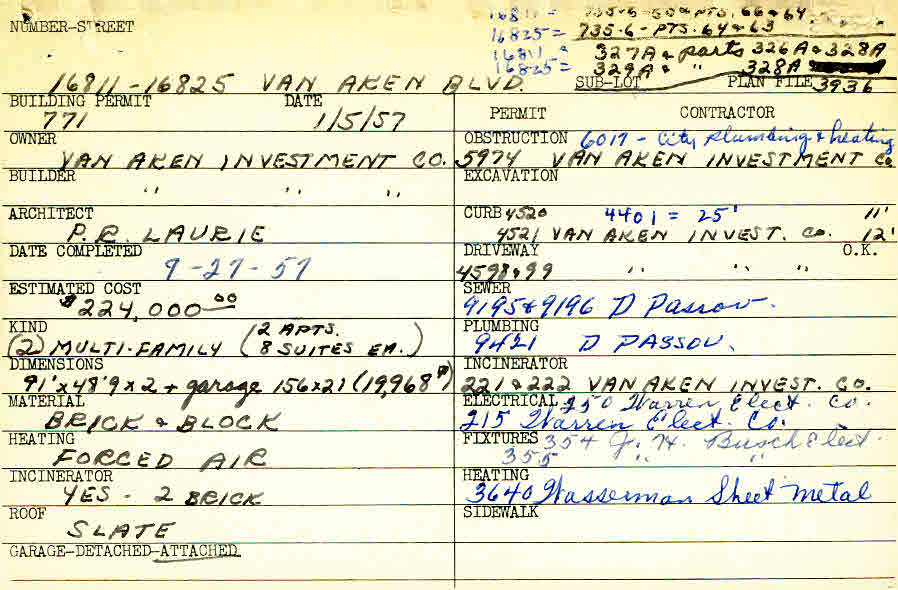 16811 = 735-5-50 & PTS. 66 & 64
NUMBER-STREET 16825 = 735-6-PTS. 64 & 63
16811 = 327A & parts 326A & 328A
16825 = 329A & " 328A
16811-16825 VAN AKEN BLVD. SUB-LOT PLAN FILE 3936
BUILDING PERMIT DATE PERMIT CONTRACTOR
771 1/5/57
OWNER OBSTRUCTION 6017 - City Plumbing & heating
VAN AKEN INVESTMENT CO. 5974 VAN AKEN INVESTMENT Co
BUILDER EXCAVATION
" " "
ARCHITECT CURB 4520 4401 = 25' 11'
P.R. LAURIE 4521 VAN AKEN INVEST. Co. 12'
DATE COMPLETED DRIVEWAY O.K.
9-27-57 4598 & 99 " " "
ESTIMATED COST SEWER
$224,000.00 9195 & 9196 D Passov.
KIND PLUMBING
(2) MULTI-FAMILY (2 APTS. 8 SUITES EA.) 9421 D PASSOV.
DIMENSIONS INCINERATOR
91'x48'9 x 2 + garage 156x21 (19,968 #) 221 & 222 VAN AKEN INVEST. CO.
MATERIAL ELECTRICAL 250 Warren Elect. Co.
BRICK & BLOCK 215 Warren Elect. Co.
HEATING FIXTURES 354 J. H. Busch Elect.
FORCED AIR 355 " "
INCINERATOR HEATING
YES - 2 BRICK 3640 Wasserman Sheet Metal
ROOF SIDEWALK
SLATE
GARAGE-DETACHED-ATTACHED